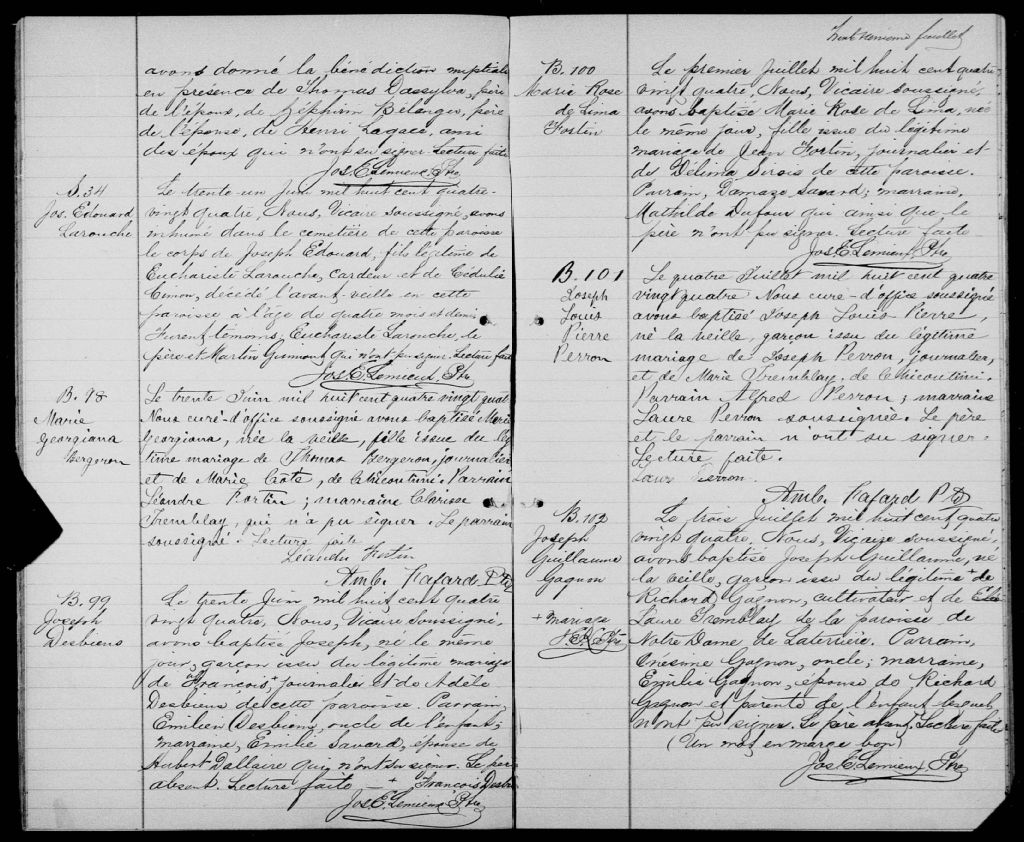 avons donné la bénédiction nuptiale
en présence de Thomas Dassylva, père
de l'époux, de Zéphirin Bélanger, père
de l'épouse, de Henri Lagacé, ami
des époux qui n'ont su signer. Lecture faite
Jos. E. Lemieux, Ptre
S. 34
Jos. Edouard
Larouche
Le trente-un Juin mil huit cent quatre-
vingt quatre, Nous, Vicaire soussigné, avons
inhumé dans le cemetière de cette paroisse
le corps de Joseph Edouard, fils légitime de
Euchariste Larouche, cardeur et de Cédulie
Simon, décédé l'avant-veille en cette
paroisse à l'âge de quatre mois et demi
Furent témoins, Euchariste Larouche, le
père et Martin Guimont qui n'ont pu signer. Lecture faite
Jos. E. Lemieux, Ptre
B. 98
Marie
Georgiana
Bergeron
Le trente Juin mil huit cent quatre vingt quatre
Nous curé-d'office soussigné avons baptisé Marie
Georgiana, née la veille, fille issue du légi
time mariage de Thomas Bergeron, journalier
et de Marie Coté, de Chicoutimi. Parrain
Léandre Fortin; marraine Clarisse
Tremblay, qui n'a pu signer. Le parrain
soussigné. Lecture faite
Léandre Fortin
Amb. Fafard Ptre
B. 99
Joseph
Desbiens
Le trente Juin mil huit cent quatre
vingt quatre, Nous, Vicaire soussigné,
avons baptisé Joseph, né le même
jour, garçon issu du légitime mariage
de François +, journalier et de Adèle
Desbiens de cette paroisse. Parrain,
Emilien Desbiens, oncle de l'enfant;
marraine, Emilie Savard, épouse de
Hubert Dallaire qui n'ont su signer. Le père
absent. Lecture faite + François Desbiens
Jos. E. Lemieux, Ptre
feuillet
B. 100
Marie Rose
de Lima
Fortin
Le premier Juillet mil huit cent quatre
vingt quatre, Nous, Vicaire soussigné,
avons baptisé Marie Rose de Lima, née
le même jour, fille issue du légitime
mariage de Jean Fortin, journalier et
de Délima Sirois de cette paroisse.
Parrain, Damaze Savard; marraine,
Mathilde Dufour qui ainsi que le
père n'ont pu signer. Lecture faite
Jos. E. Lemieux, Ptre
B. 101
Joseph
Louis
Pierre
Perron
Le quatre Juillet mil huit cent quatre
vingt quatre Nous curé-d'office soussigné
avons baptisé Joseph Louis Pierre,
né la veille, garçon issu du légitime
mariage de Joseph Perron, journalier,
et de Marie Tremblay, de Chicoutimi.
Parrain Alfred Perron; marraine
Laure Perron soussignée. Le père
et le parrain n'ont su signer.
Lecture faite.
Laure Perron.
Amb. Fafard Ptre
B. 102
Joseph
Guillaume
Gagnon
+ mariage
J. E. L. Ptre
Le trois Juillet mil huit cent quatre
vingt quatre, Nous, Vicaire soussigné,
avons baptisé Joseph Guillaume, né
la veille, garçon issu du légitime + de
Richard Gagnon, cultivateur et de
Laure Tremblay de la paroisse de
Notre Dame de Laterrière. Parrain,
Onésime Gagnon, oncle; marraine,
Emilie Gagnon, épouse de Richard
Gagnon et parente de l'enfant lesquels
n'ont pu signer. Le père absent. Lecture faite
(Un mot en marge bon)
Jos. E. Lemieux, Ptre